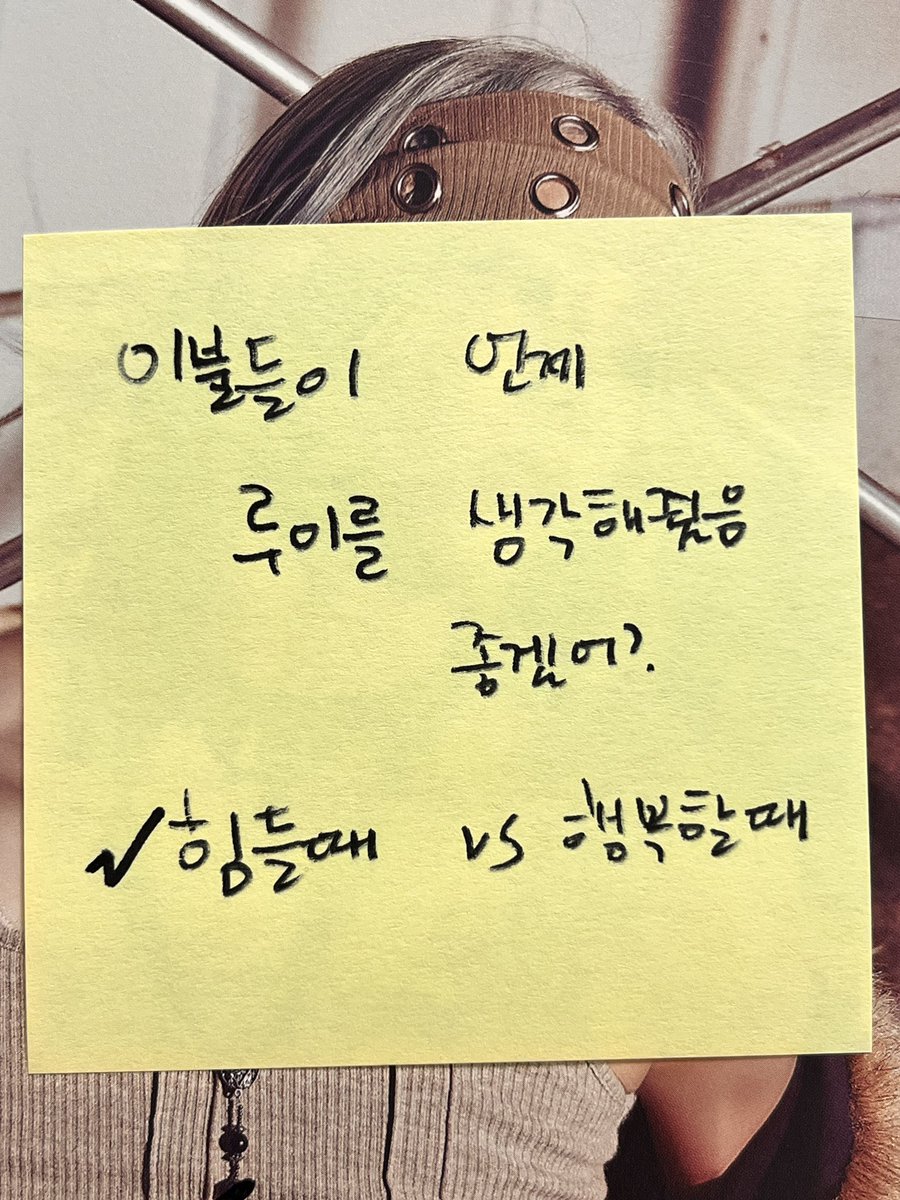 이불들이 언제
루이를 생각해줬음
좋겠어?
✓힘들때 vs 행복할때